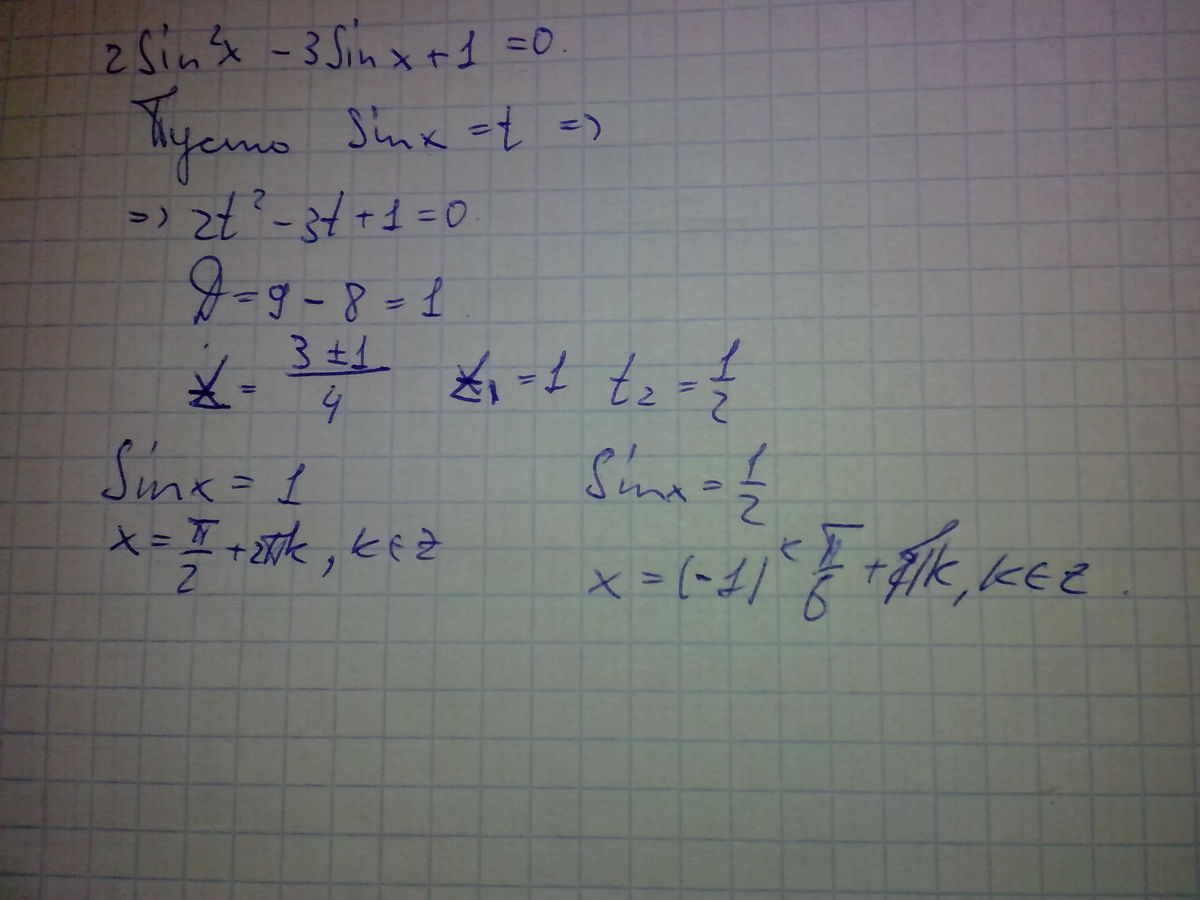 2 Sin²x - 3 Sin x + 1 = 0.
Пусть Sin x = t =>
=> 2t² - 3t + 1 = 0.
D = 9 - 8 = 1
t = (3 ± 1)/4 t₁ = 1 t₂ = 1/2
Sin x = 1 Sin x = 1/2
x = π/2 + 2πk, k ∈ z x = (-1)ᵏ π/6 + πk, k ∈ z.